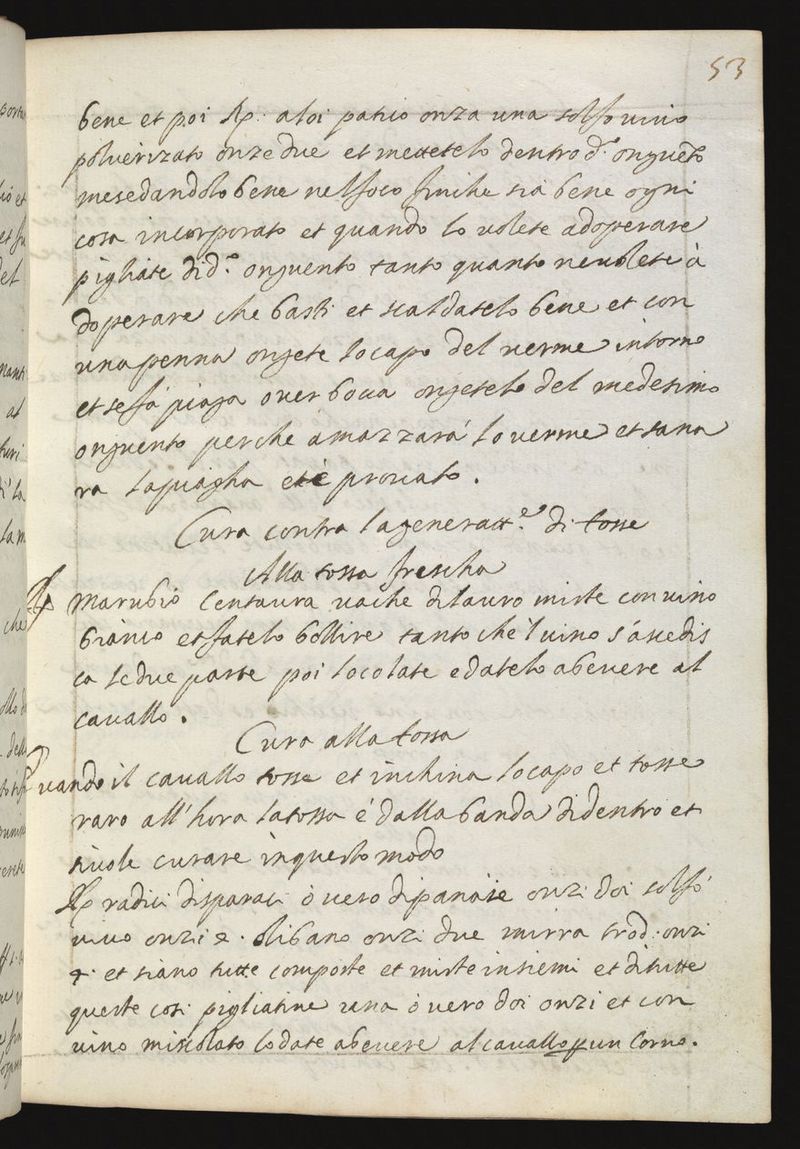 53
bene et poi Rp. aloi patico onza una solfo vivo
polverizato onze due et mettetelo dentro d.o onguẽto
mesedandolo bene nel foco finche sia bene ogni
cosa incorporato et quando lo volete adoperare
pigliate di d.o onguento tanto quanto ne volete à
doperare che basti et scaldatelo bene et con
una penna ongete lo capo del verme intorno
et se fà piaga over bocca ongetelo del medesimo
onguento perche amazzarà lo verme et sana
ra la piagha et è provato.
Cura contra la generatt.e di tosse
Alla tossa frescha
Rp marubio Centaura vache di lauro miste con vino
bianco et fatelo bollire tanto che'l vino s'ascedis
ca le due parte poi lo colate e datelo a bevere al
cavallo.
Cura alla tossa
Quando il cavallo tosse et inchina lo capo et tosse
raro all'hora la tossa è dalla banda di dentro et
si vole curare in questo modo
Rp radici di sparaci ò vero di panace onzi doi solfo
vivo onzi 2. olibano onzi due mirra trod. onzi
et siano tutte composte et miste insiemi et di tutte
queste cosi pigliatine una ò vero doi onzi et con
vino miscolato lo date a bevere al cavallo p un Corno.